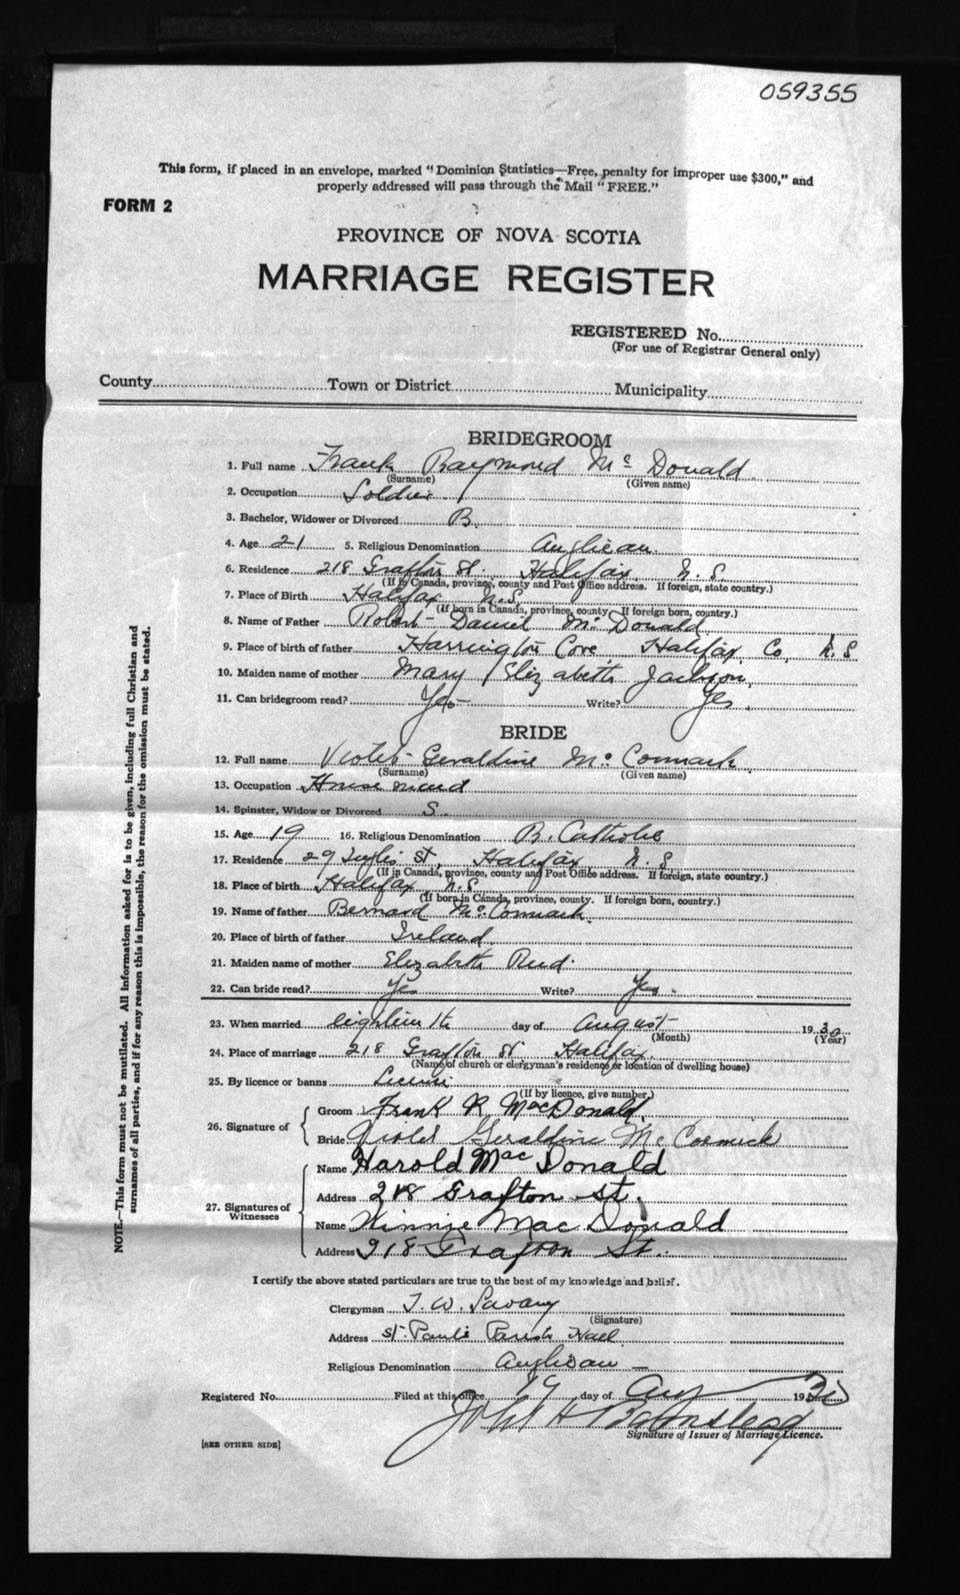 059355
This form, if placed in an envelope, marked "Dominion Statistics—Free, penalty for improper use $300," and
properly addressed will pass through the Mail "FREE."
FORM 2
PROVINCE OF NOVA SCOTIA
MARRIAGE REGISTER
REGISTERED No.
(For use of Registrar General only)
County Town or District Municipality
BRIDEGROOM
1. Full name Frank Raymond Mc Donald
(Surname) (Given name)
2. Occupation Soldier
3. Bachelor, Widower or Divorced B.
4. Age 21 5. Religious Denomination Anglican.
6. Residence 218 Grafton St. Halifax N.S.
(If in Canada, province, county and Post Office address. If foreign, state country.)
7. Place of Birth Halifax N.S.
(If born in Canada, province, county. If foreign born, country.)
8. Name of Father Robert Daniel Mc Donald
9. Place of birth of father Harrington Cove Halifax Co, N.S
10. Maiden name of mother Mary Elizabeth Jackson,
11. Can bridegroom read? Yes Write? Yes.
BRIDE
12. Full name Violet Geraldine Mc Cormack.
(Surname) (Given name)
13. Occupation House maid
14. Spinster, Widow or Divorced S.
15. Age 19 16. Religious Denomination R. Catholic
17. Residence 29 Inglis St, Halifax N.S
(If in Canada, province, county and Post Office address. If foreign, state country.)
18. Place of birth Halifax N.S
(If born in Canada, province, county. If foreign born, country.)
19. Name of father Bernard Mc Cormack.
20. Place of birth of father Ireland
21. Maiden name of mother Elizabeth Reid.
22. Can bride read? Yes Write? Yes.
23. When married eighteenth day of August 1930
(Month) (Year)
24. Place of marriage 218 Grafton St Halifax.
(Name of church or clergyman's residence or location of dwelling house)
25. By licence or banns License
(If by licence, give number.)
26. Signature of
Groom Frank R. MacDonald
Bride Violet Geraldine Mc Cormick
27. Signatures of Witnesses
Name Harold Mac Donald
Address 218 Grafton St.
Name Winnie Mac Donald
Address 218 Grafton St.
I certify the above stated particulars are true to the best of my knowledge and belief.
Clergyman T. W. Savary
(Signature)
Address St. Paul's Parish Hall
Religious Denomination Anglican
Registered No. Filed at this office 19 day of Aug 1930
John H Balmstead
Signature of Issuer of Marriage Licence.
[SEE OTHER SIDE]
NOTE.—This form must not be mutilated. All information asked for is to be given, including full Christian and
surnames of all parties, and if for any reason this is impossible, the reason for the omission must be stated.